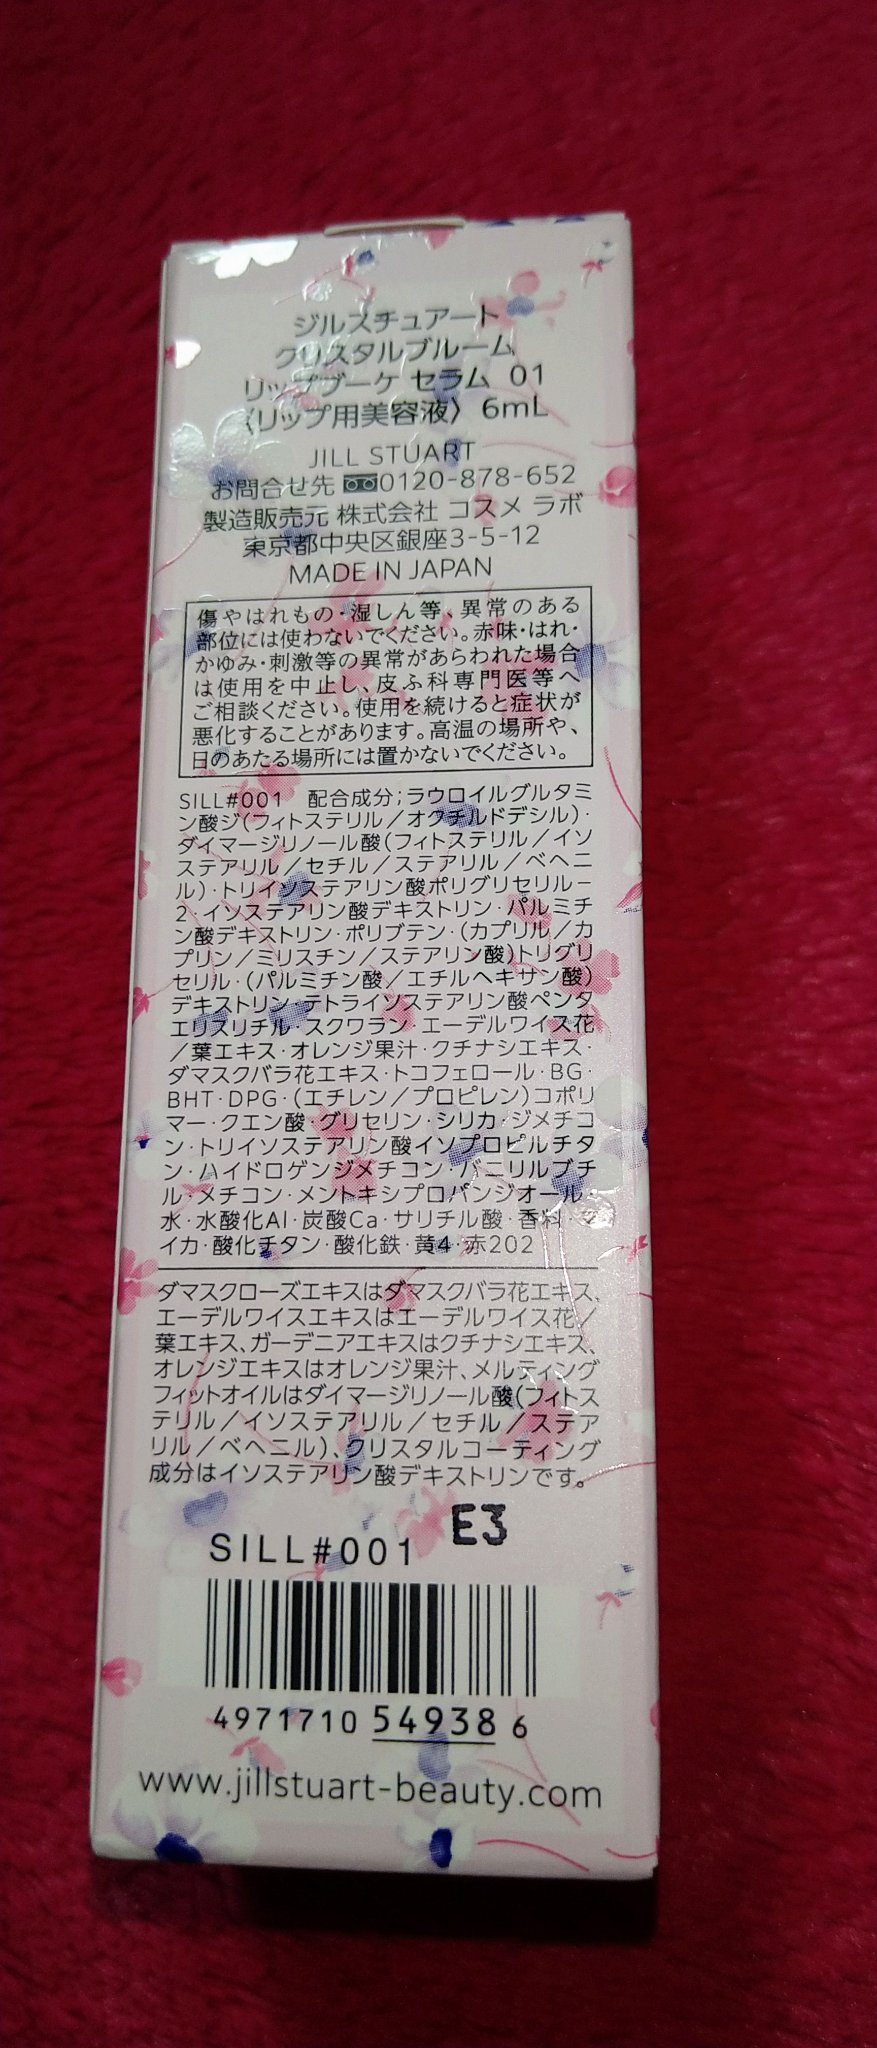 ジルスチュアート
クリスタルブルーム
リップブーケ セラム 01
〈リップ用美容液〉 6mL
JILL STUART
お問合せ先 0120-878-652
製造販売元 株式会社 コスメ ラボ
東京都中央区銀座3-5-12
MADE IN JAPAN
傷やはれもの・湿しん等、異常のある
部位には使わないでください。赤味・はれ・
かゆみ・刺激等の異常があらわれた場合
は使用を中止し、皮ふ科専門医等へ
ご相談ください。使用を続けると症状が
悪化することがあります。高温の場所や、
日のあたる場所には置かないでください。
SILL#001 配合成分；ラウロイルグルタミ
ン酸ジ(フィトステリル／オクチルドデシル)・
ダイマージリノール酸(フィトステリル／イソ
ステアリル／セチル／ステアリル／ベヘニ
ル)・トリイソステアリン酸ポリグリセリル－
2・イソステアリン酸デキストリン・パルミチ
ン酸デキストリン・ポリブテン・(カプリル／カ
プリン／ミリスチン／ステアリン酸)トリグリ
セリル・(パルミチン酸／エチルヘキサン酸)
デキストリン・テトライソステアリン酸ペンタ
エリスリチル・スクワラン・エーデルワイス花
／葉エキス・オレンジ果汁・クチナシエキス・
ダマスクバラ花エキス・トコフェロール・BG・
BHT・DPG・(エチレン／プロピレン)コポリ
マー・クエン酸・グリセリン・シリカ・ジメチコ
ン・トリイソステアリン酸イソプロピルチタ
ン・ハイドロゲンジメチコン・バニリルブチ
ル・メチコン・メントキシプロパンジオール・
水・水酸化Al・炭酸Ca・サリチル酸・香料・マ
イカ・酸化チタン・酸化鉄・黄4・赤202
ダマスクローズエキスはダマスクバラ花エキス、
エーデルワイスエキスはエーデルワイス花／
葉エキス、ガーデニアエキスはクチナシエキス、
オレンジエキスはオレンジ果汁、メルティング
フィットオイルはダイマージリノール酸(フィトス
テリル／イソステアリル／セチル／ステア
リル／ベヘニル)、クリスタルコーティング
成分はイソステアリン酸デキストリンです。
E3
SILL#001
4971710 54938 6
www.jillstuart-beauty.com